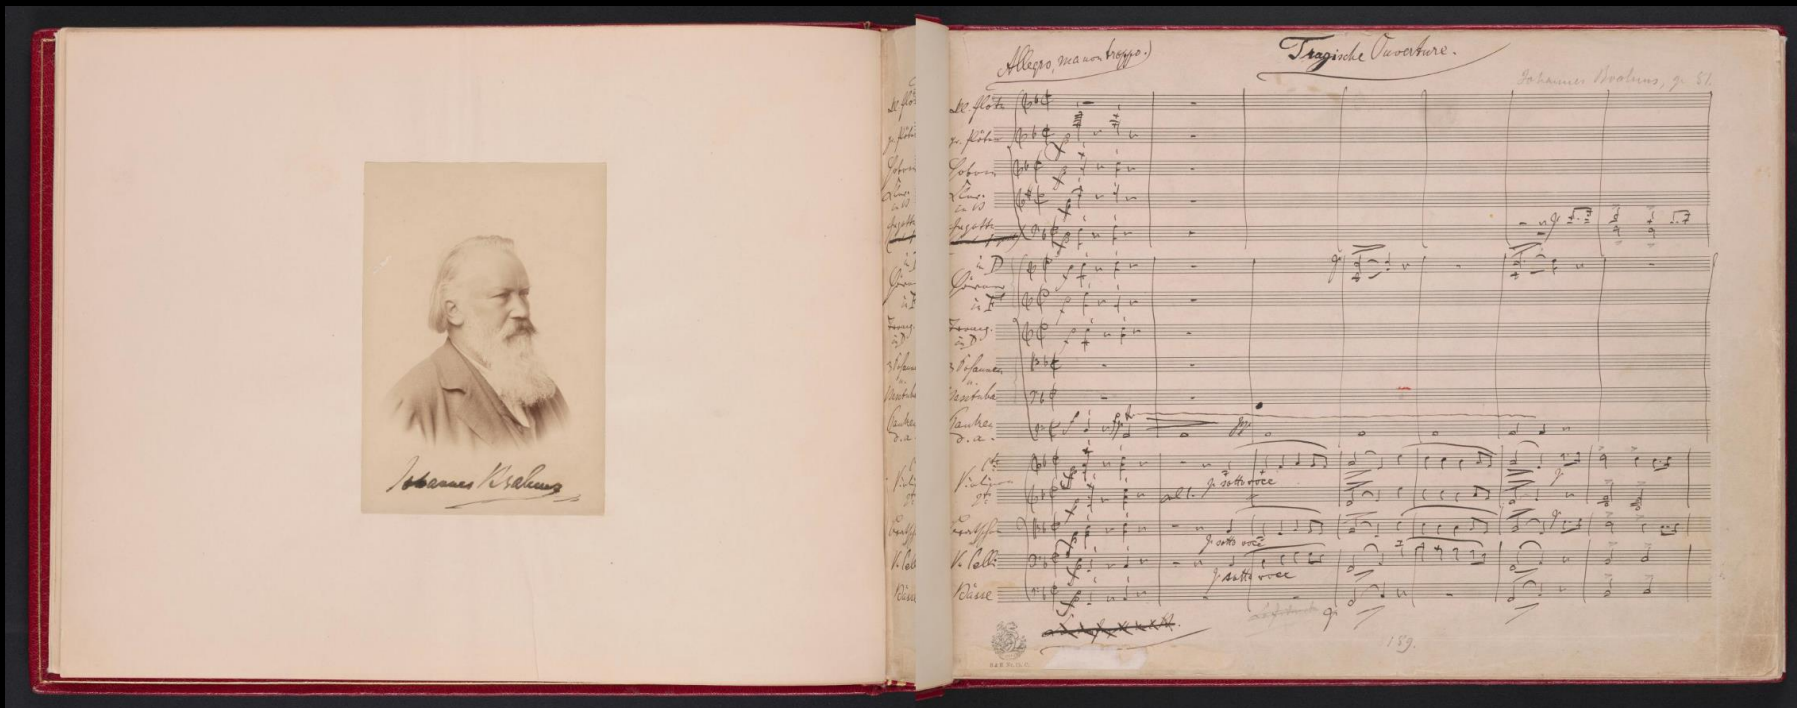 Johannes Brahms
Allegro, ma non troppo.)
Tragische Ouverture.
Johannes Brahms, op. 81.
kl. Flöte
gr. Flöten
Hoboen
Clar.
in B
Fagotte
in D
Hörner
in F
Tromp.
in D.
3 Posaunen
u.
Basstuba
Pauken
d. a.
1te
Violinen
2te
Bratschen
V. Celli
Bässe
p sotto voce
p sotto voce
p sotto voce
189.